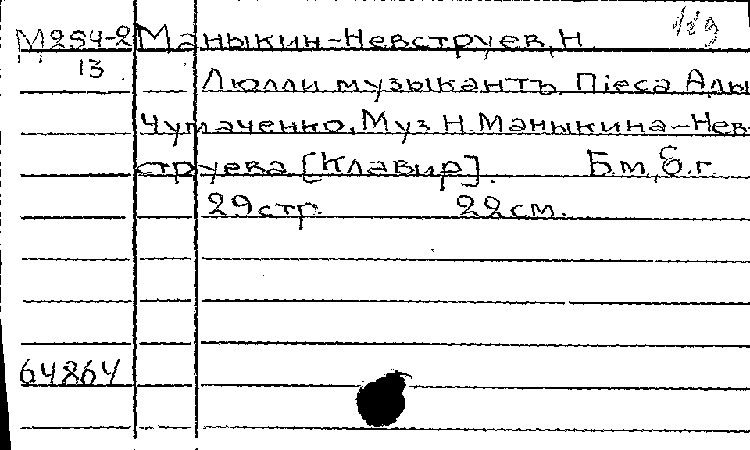 М254-2 Маныкин-Невструев, Н. 119
13
Люлли музыкантъ. Пiеса Ады
Чумаченко. Муз. Н. Маныкина-Нев-
струева [Клавир]. Б.м, б.г.
29 стр. 22 см.
64864